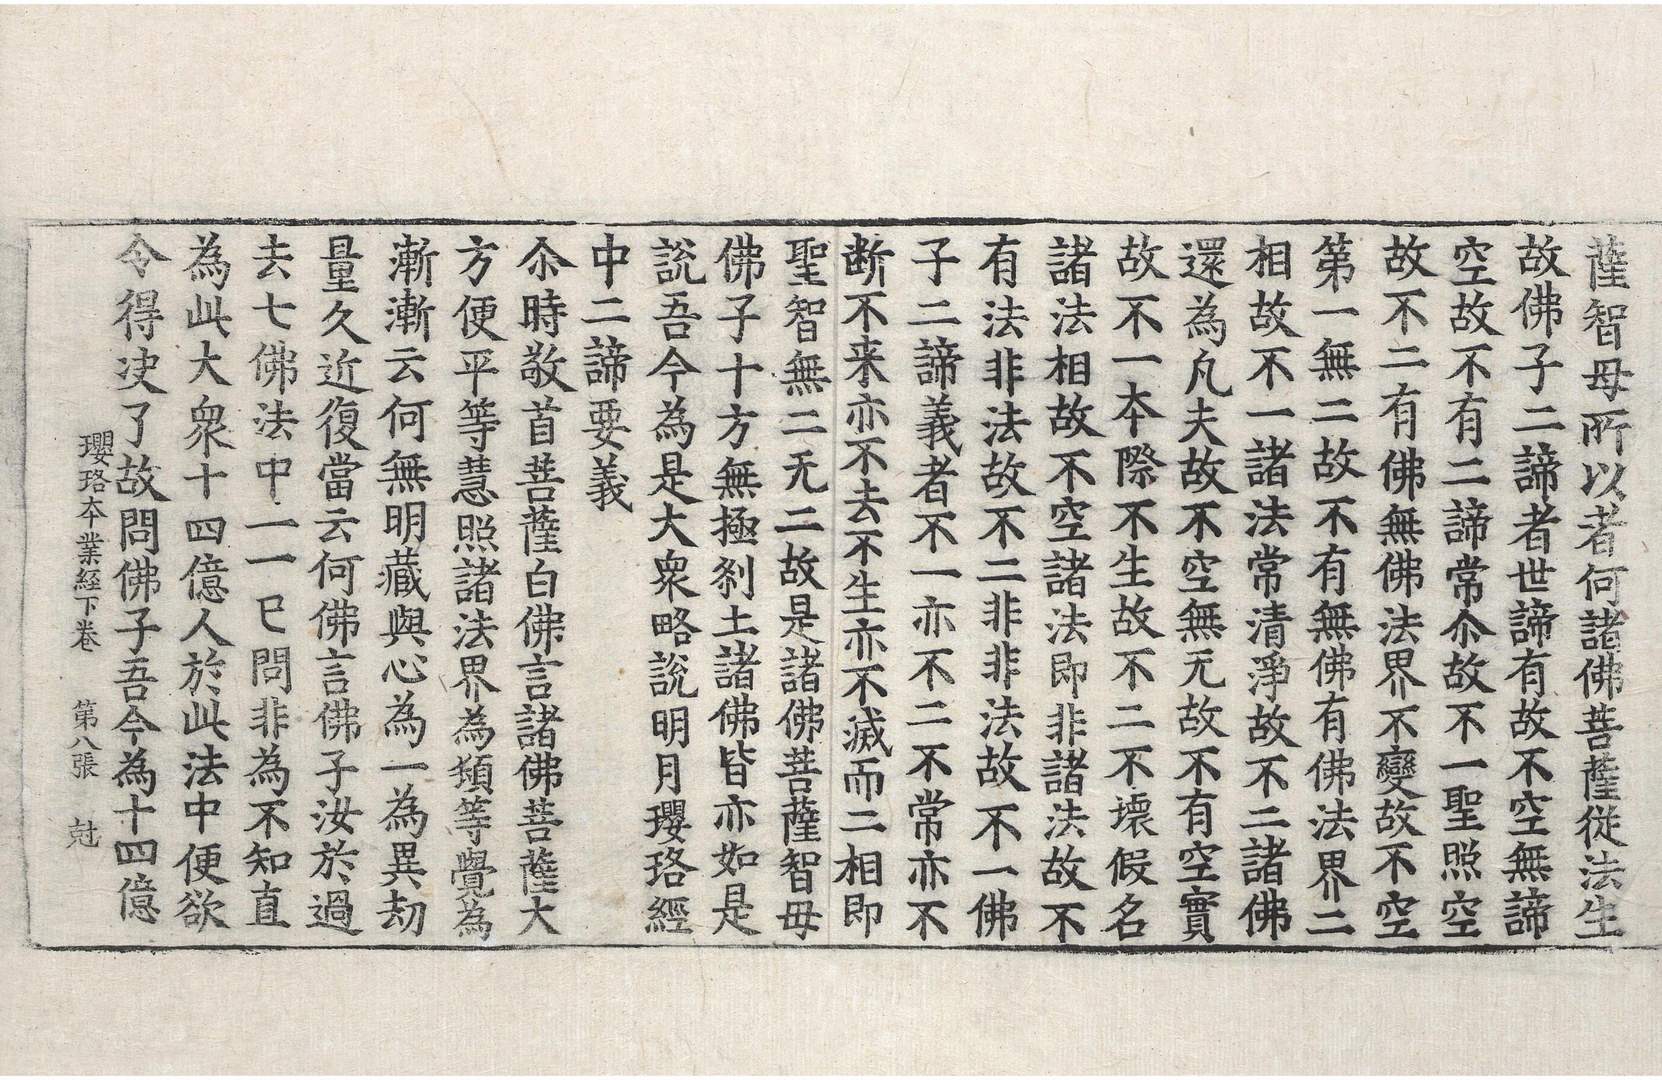 薩智母所以者何諸佛菩薩從法生
故佛子二諦者世諦有故不空無諦
空故不有二諦常尒故不一聖照空
故不二有佛無佛法界不變故不空
第一無二故不有無佛有佛法界二
相故不一諸法常清淨故不二諸佛
還為凡夫故不空無无故不有空實
故不一本際不生故不二不壞假名
諸法相故不空諸法即非諸法故不
有法非法故不二非非法故不一佛
子二諦義者不一亦不二不常亦不
断不来亦不去不生亦不滅而二相即
聖智無二无二故是諸佛菩薩智母
佛子十方無極刹土諸佛皆亦如是
說吾今為是大衆略說明月瓔珞經
中二諦要義
尒時敬首菩薩白佛言諸佛菩薩大
方便平等慧照諸法界為頓等覺為
漸漸云何無明藏與心為一為異劫
量久近復當云何佛言佛子汝於過
去七佛法中一一已問非為不知直
為此大衆十四億人於此法中便欲
令得决了故問佛子吾今為十四億
瓔珞本業経下卷 第八張 尅